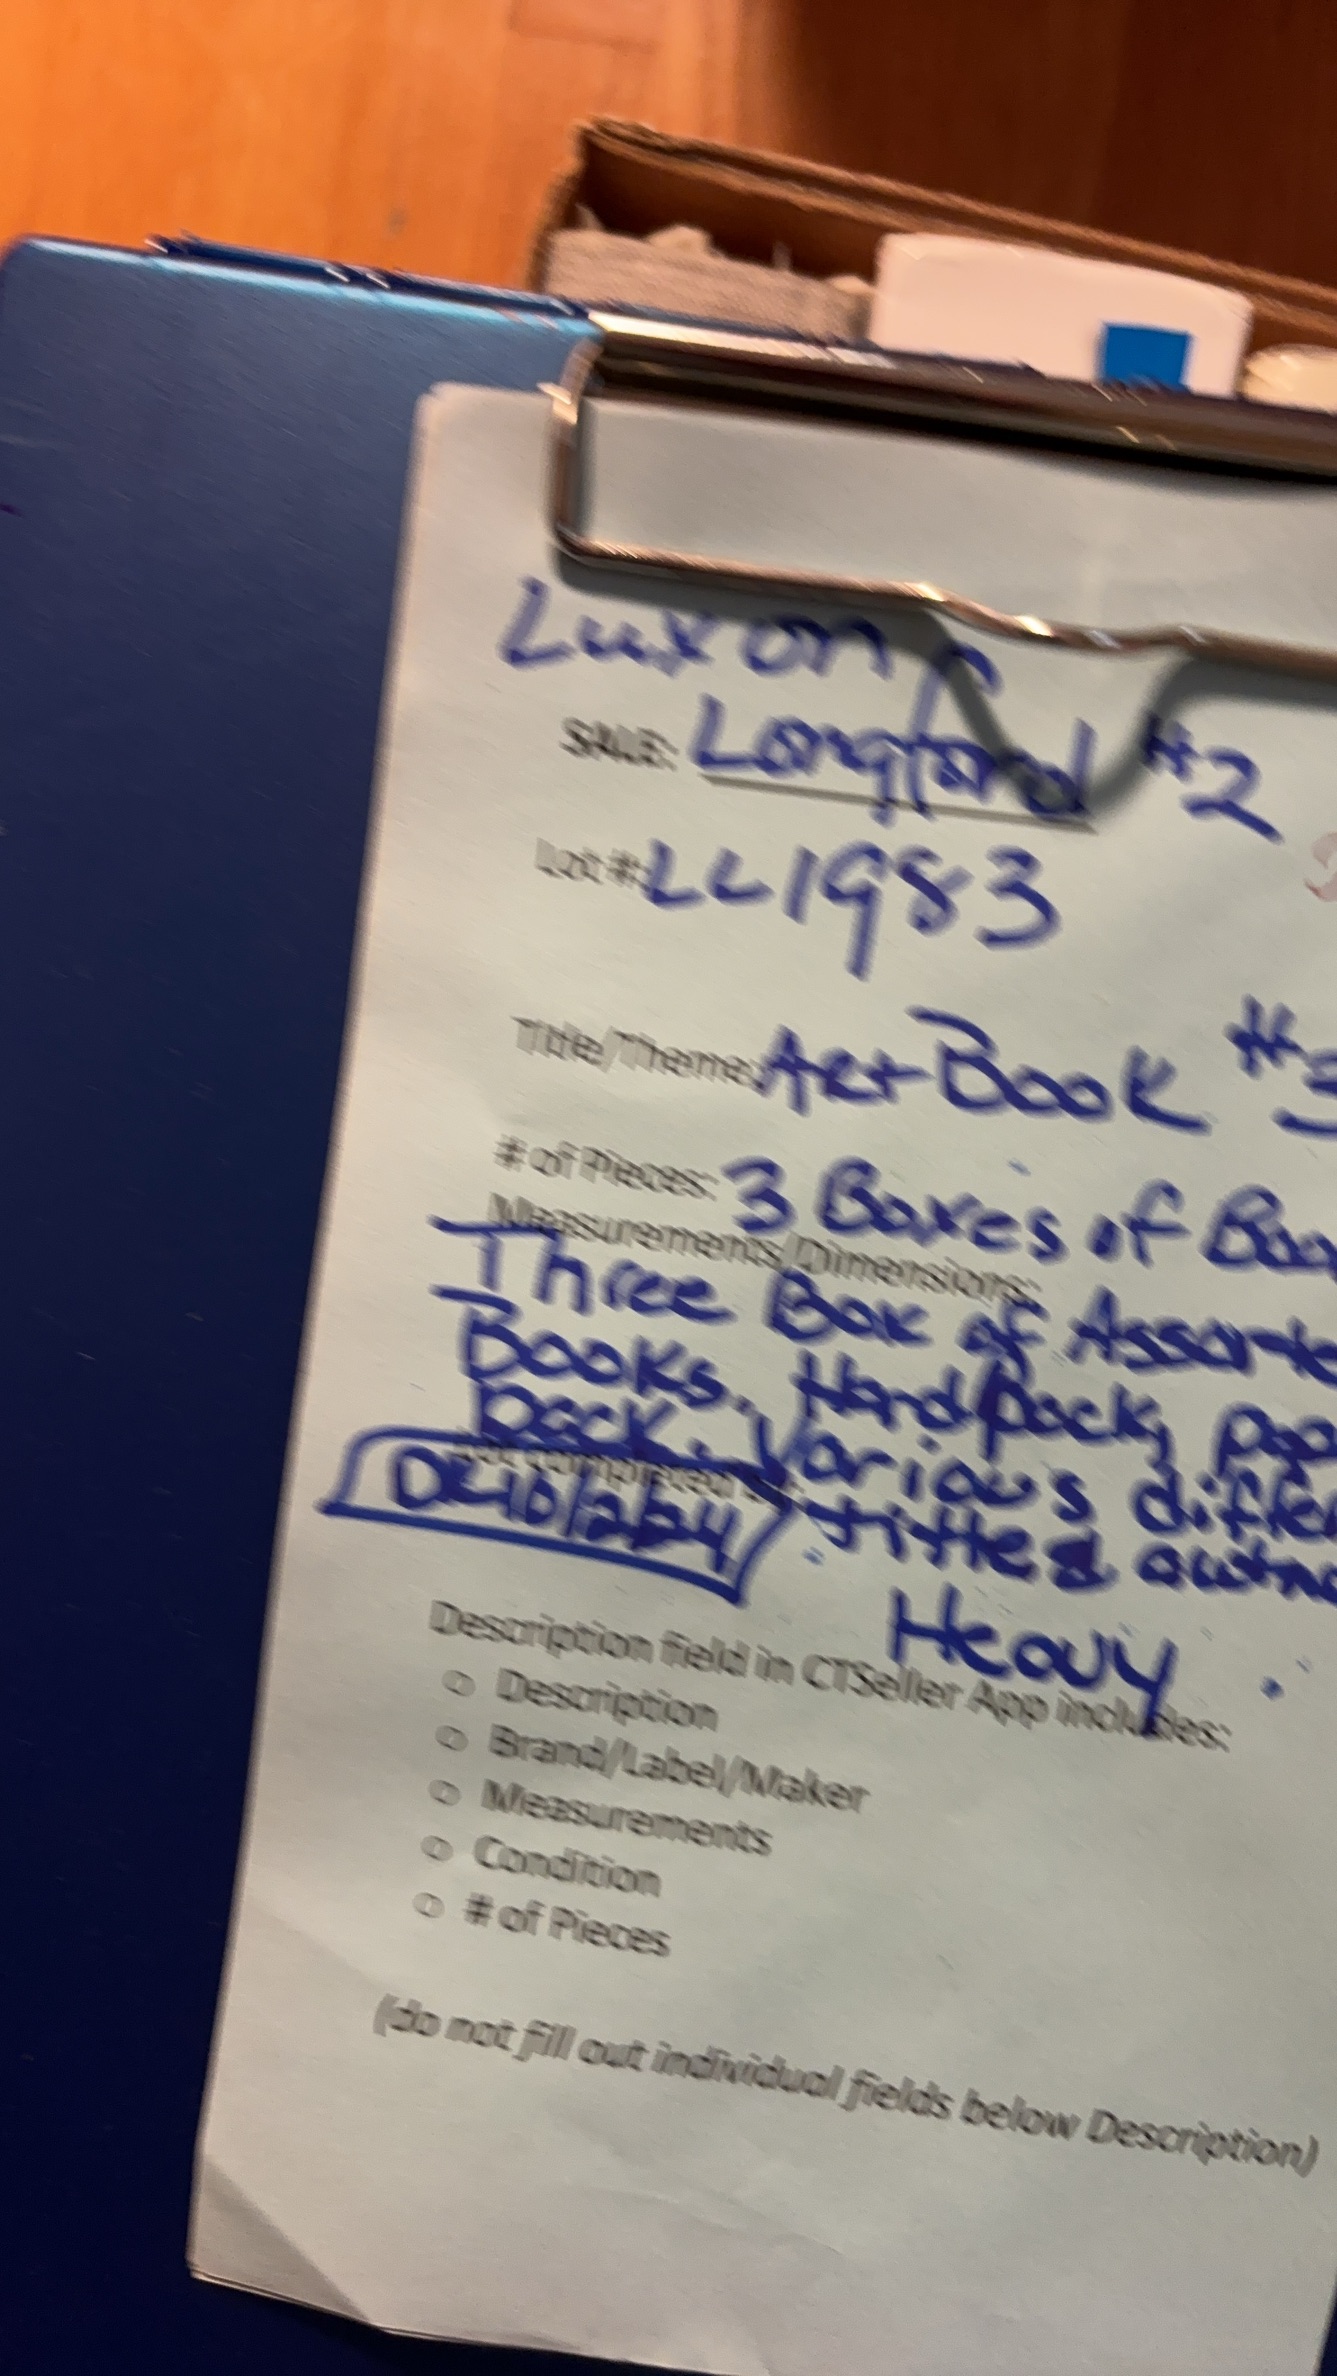 Luxon
SALE: Longford #2
Lot #: LL1983
Title/Theme: Art Book #
# of Pieces: 3 Boxes of Boo
Measurements/Dimensions:
Three Box of Assorte
Books. Hard pack, pap
back. Various differ
DK 10/2/24 titled autho
Heavy.
Description field in CTSeller App includes:
o Description
o Brand/Label/Maker
o Measurements
o Condition
o # of Pieces
(do not fill out individual fields below Description)